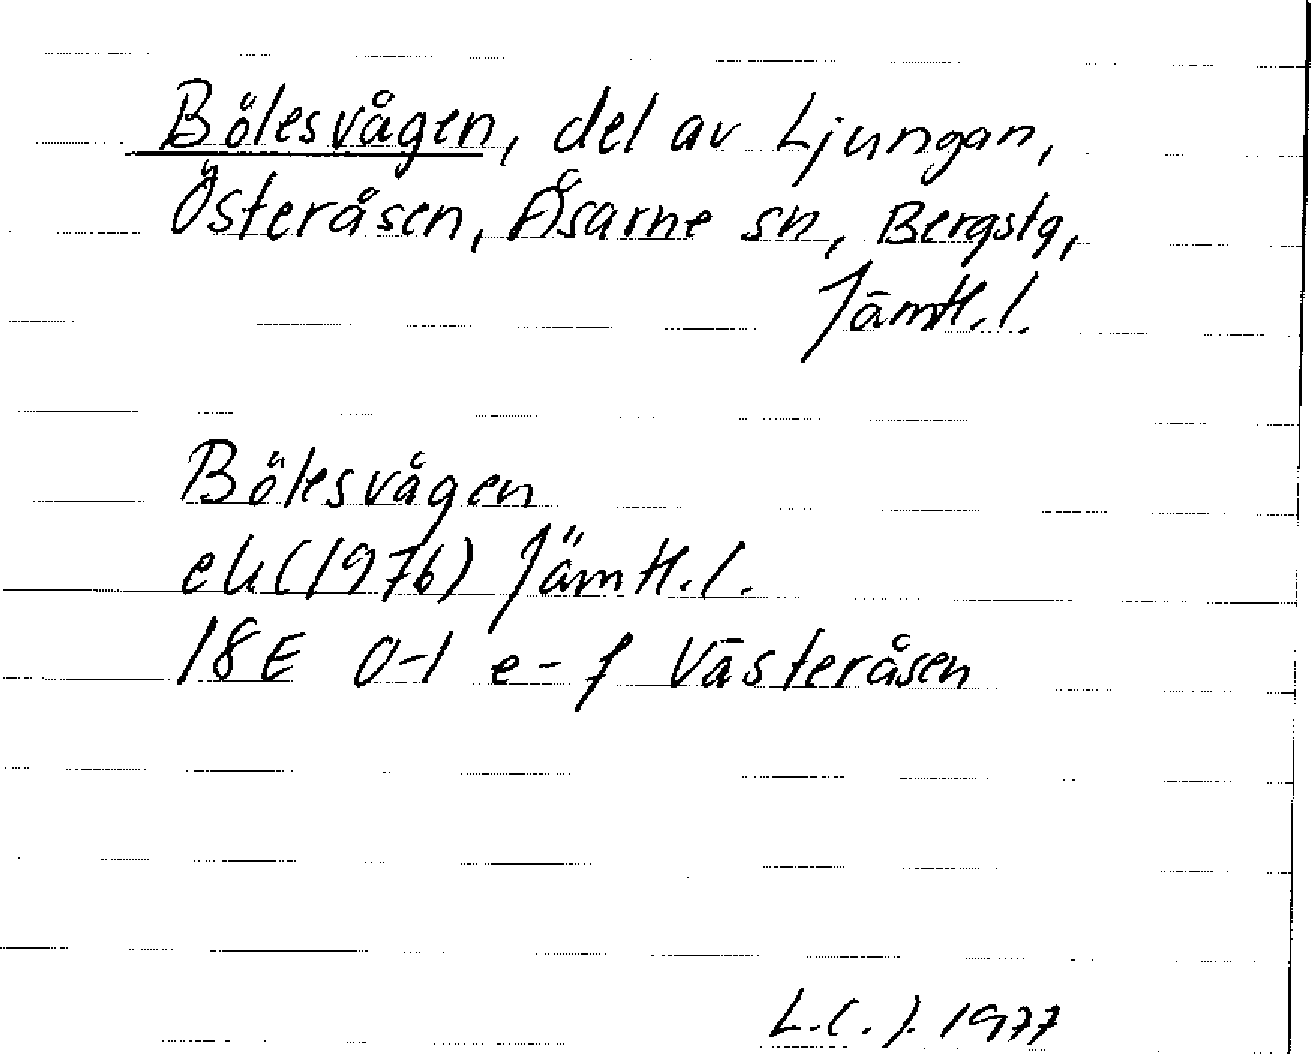 Bölesvågen, del av Ljungan,
Österåsen, Åsarne sn, Bergstg,
Jämtl.l.
Bölesvågen
ek(1976) Jämtl.l.
18E 0-1 e-f Västeråsen
L.C.J. 1977